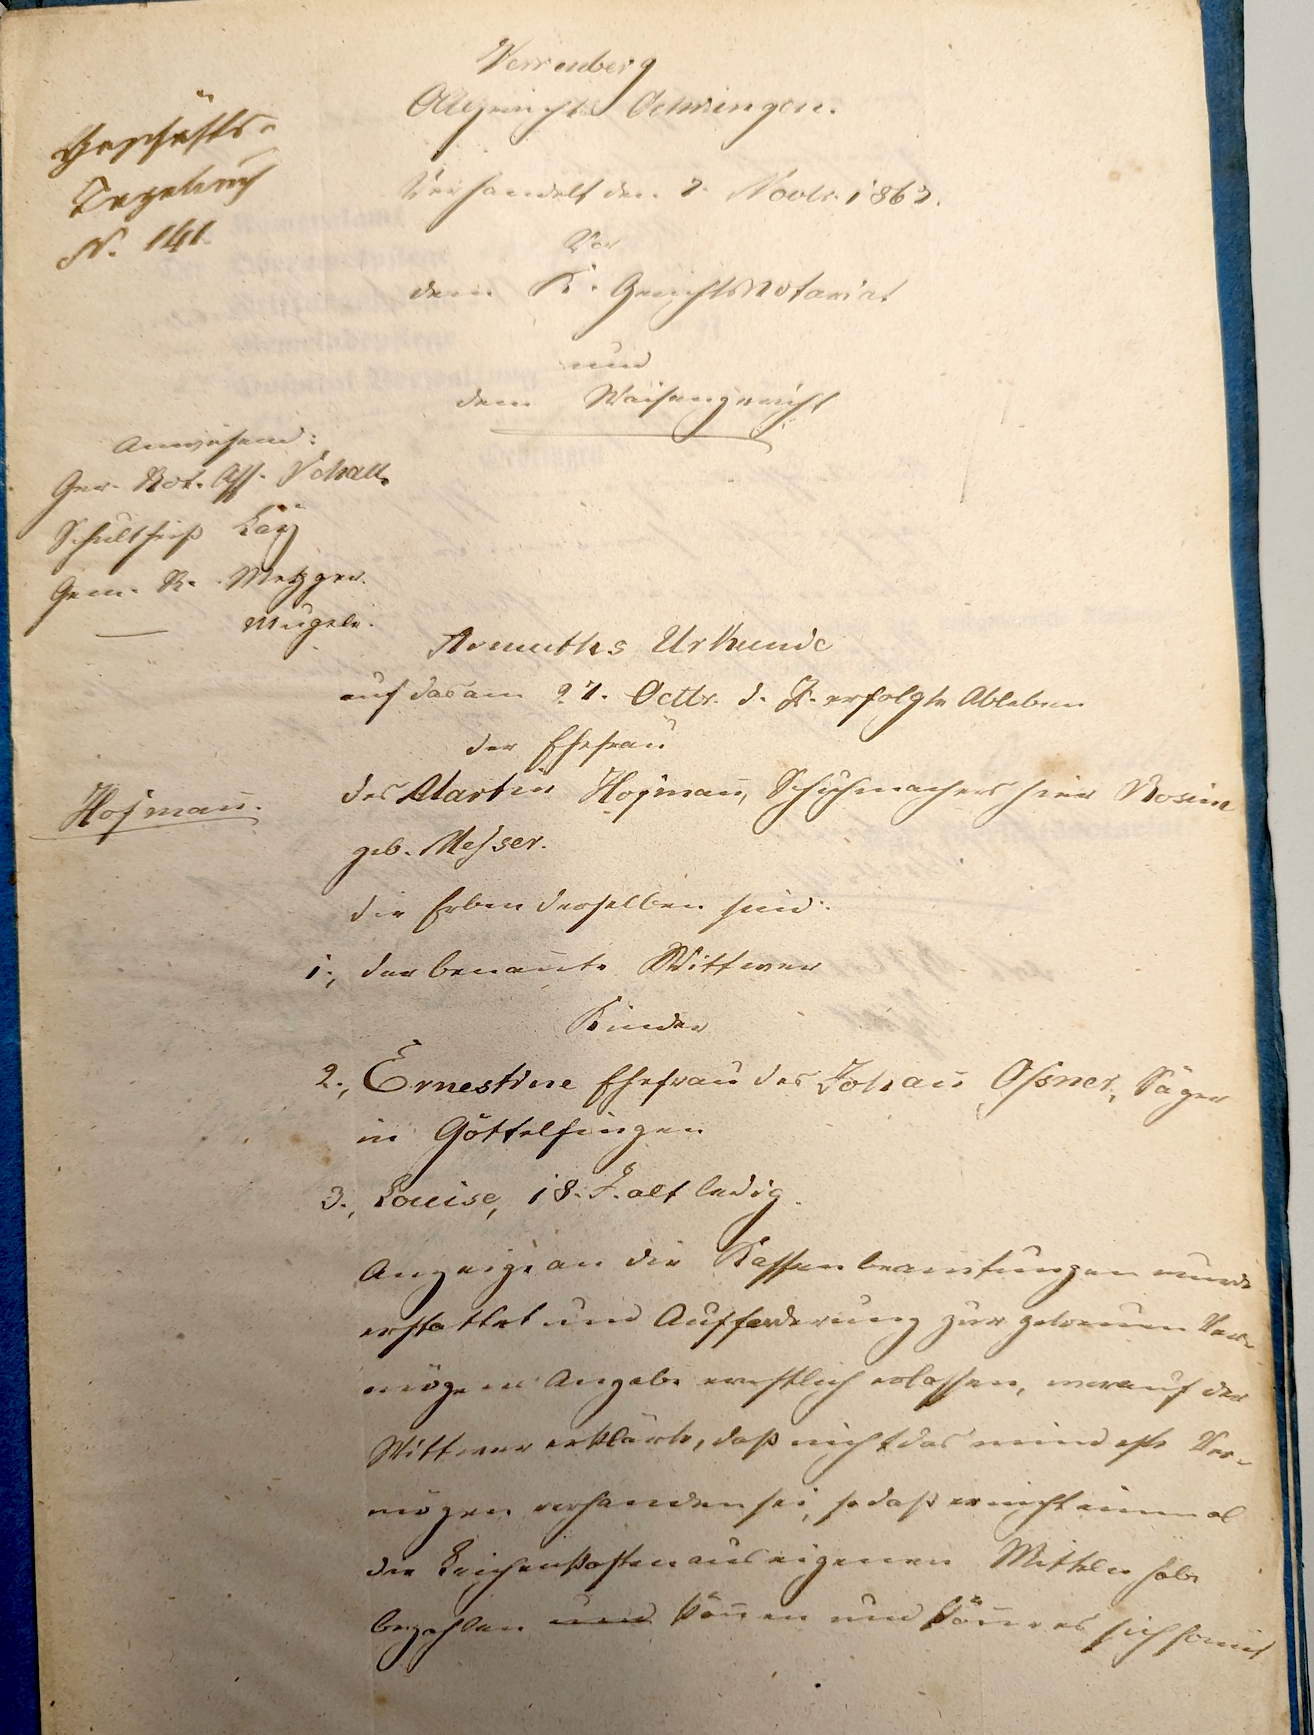 Verrenberg
OAGerichts Oehringen.
Geschäfts-
Tagebuch
N. 141.
Verhandelt den 7. Novbr. 1867.
Vor
dem K. Gerichtsnotariat
und
dem Waisengericht
Anwesend:
Ger. Not. Ass. Schall.
Schultheiß Kay
Gem. R. Metzger.
— Mugele.
Armuths Urkunde
auf das am 27. Octbr. d. Js. erfolgte Ableben
der Ehefrau
Hofman̄.
des Martin Hofman̄, Schuhmachers hier Rosine
geb. Messer.
Die Erben derselben sind:
1., der benan̄te Wittwer
Kinder
2., Ernestine Ehefrau des Johan̄ Ossner, Säger
in Göttelfingen
3., Louise, 18. J. alt ledig.
Anzeige an die Kassenbeamtungen wurde
erstattet und Aufforderung zur getreuen Ver-
mögens Angabe ernstlich erlassen, worauf der
Wittwer erklärte, daß nicht das mindeste Ver-
mögen vorhanden sei, so daß er nicht einmal
die Leichenkosten aus eigenen Mitteln habe
bezahlen und kön̄en und kön̄e es sich somit